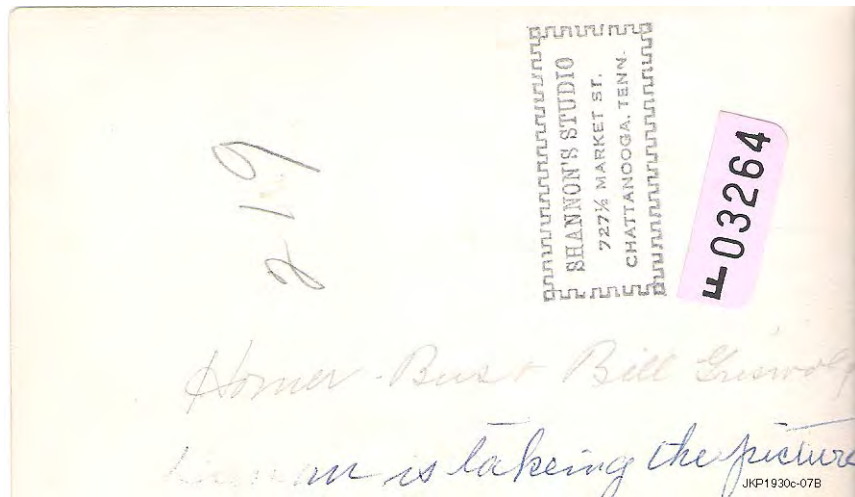 SHANNON'S STUDIO
727½ MARKET ST.
CHATTANOOGA, TENN.
F 03264
219
Homer - Bus + Bill Griswold
is takeing the picture
JKP1930c-07B